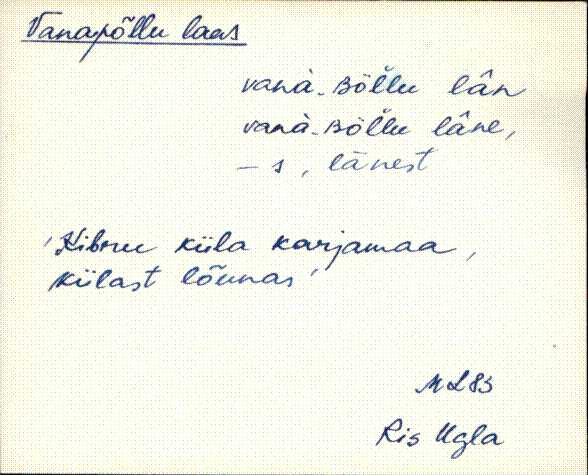 Vanapõllu laas
vanà-Bòl̆lu lân
vanà-Bòl̆lu lâne,
– s, lānest
'Kibru küla karjamaa,
külast lõunas'
ML83
Ris Ugla